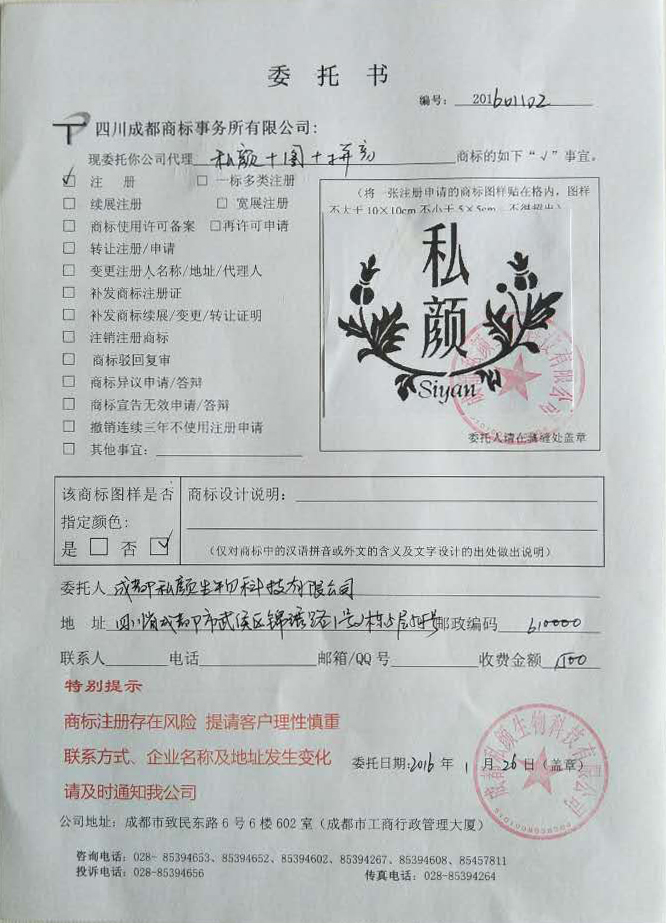 委托书
编号: 201601102
四川成都商标事务所有限公司:
现委托你公司代理 私颜+图+拼音 商标的如下“√”事宜。
☑ 注 册 □ 一标多类注册
□ 续展注册 □ 宽展注册
□ 商标使用许可备案 □再许可申请
□ 转让注册/申请
□ 变更注册人名称/地址/代理人
□ 补发商标注册证
□ 补发商标续展/变更/转让证明
□ 注销注册商标
□ 商标驳回复审
□ 商标异议申请/答辩
□ 商标宣告无效申请/答辩
□ 撤销连续三年不使用注册申请
□ 其他事宜:
(将一张注册申请的商标图样贴在格内,图样
不大于10×10cm 不小于5×5cm
私颜
Siyan
委托人请在骑缝处盖章
该商标图样是否
指定颜色:
是 □ 否 ☑
商标设计说明:
(仅对商标中的汉语拼音或外文的含义及文字设计的出处做出说明)
委托人 成都私颜生物科技有限公司
地 址 四川省成都市武侯区锦 路1号 栋 层 号 邮政编码 610000
联系人 电话 邮箱/QQ号 收费金额 1500
特别提示
商标注册存在风险 提请客户理性慎重
联系方式、企业名称及地址发生变化
请及时通知我公司
委托日期:2016 年 1 月 26 日(盖章)
成都私颜生物科技有限公司
公司地址:成都市致民东路6号6楼602室(成都市工商行政管理大厦)
咨询电话:028- 85394653、85394652、85394602、85394267、85394608、85457811
投诉电话:028-85394656 传真电话:028-85394264